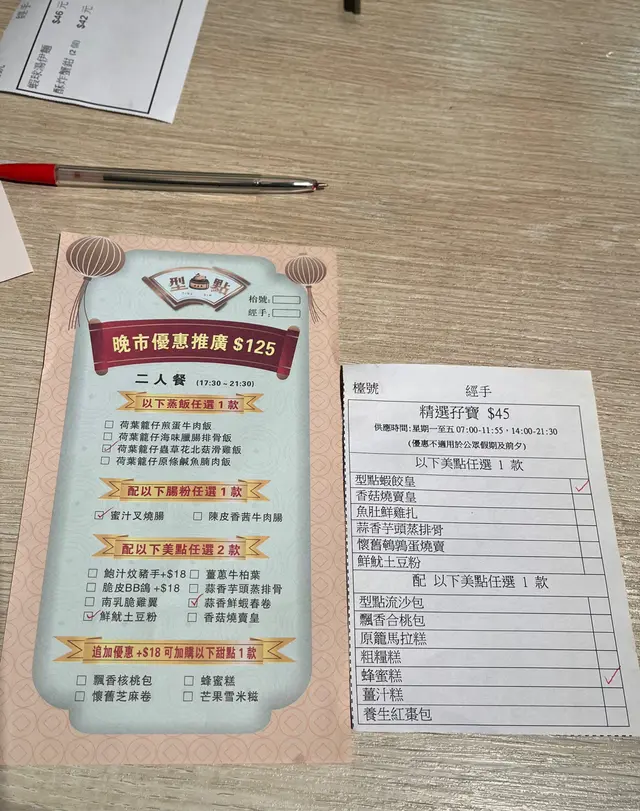 $46元
蝦球湯伊麵
$42元
酥炸蟹鉗(2個)
型點
枱號:
經手:
晚市優惠推廣 $125
二人餐 (17:30 ~ 21:30)
以下蒸飯任選 1 款
荷葉籠仔煎蛋牛肉飯
荷葉籠仔海味臘腸排骨飯
荷葉籠仔蟲草花北菇滑雞飯
荷葉籠仔原條鹹魚腩肉飯
配以下腸粉任選 1 款
蜜汁叉燒腸
陳皮香茜牛肉腸
配以下美點任選 2 款
鮑汁炆豬手+$18
薑蔥牛柏葉
脆皮BB鴿 +$18
蒜香芋頭蒸排骨
南乳脆雞翼
蒜香鮮蝦春卷
鮮魷土豆粉
香菇燒賣皇
追加優惠 +$18 可加購以下甜點 1 款
飄香核桃包
蜂蜜糕
懷舊芝麻卷
芒果雪米糍
檯號
經手
精選孖寶 $45
供應時間:星期一至五 07:00-11:55，14:00-21:30
(優惠不適用於公眾假期及前夕)
以下美點任選 1 款
型點蝦餃皇
香菇燒賣皇
魚肚鮮雞扎
蒜香芋頭蒸排骨
懷舊鵪鶉蛋燒賣
鮮魷土豆粉
配 以下美點任選 1 款
型點流沙包
飄香合桃包
原籠馬拉糕
粗糧糕
蜂蜜糕
薑汁糕
養生紅棗包